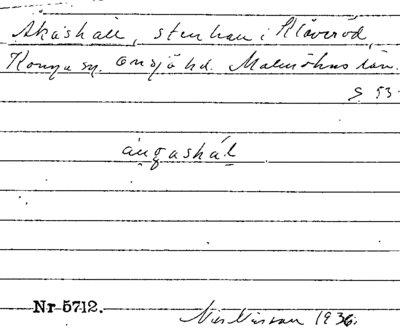 Åkashäll, stenhau i Klöveröd,
Konga sn. Onsjö hd. Malmöhus län.
S 53
áŋgashál
Nr 5712.
Nils Nilsson 1936.